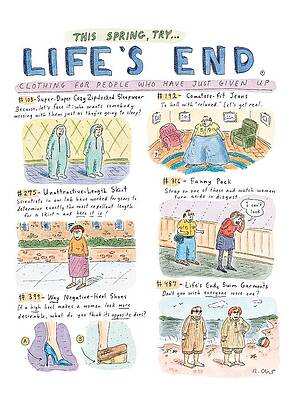 THIS SPRING, TRY...
LIFE'S END
®
CLOTHING FOR PEOPLE WHO HAVE JUST GIVEN UP
#103-Super-Duper Cozy Ziplocked Sleepwear
Because, let's face it: who wants somebody
messing with them just as they're going to sleep?
#192- Comatose-Fit Jeans
To hell with "relaxed." Let's get real.
#275- Unattractive-Length Skirt
Scientists in our lab have worked for years to
determine exactly the most repellent length
for a skirt - and here it is!
#316- Fanny Pack
Strap on one of these and watch women
turn aside in disgust.
I can't
look!
#399- Way Negative-Heel Shoes
If a high heel makes a woman look more
desirable, what do you think its opposite does?
A
B
#487- Life's End Swim Garments
Don't you wish everyone wore one?
R. Chast